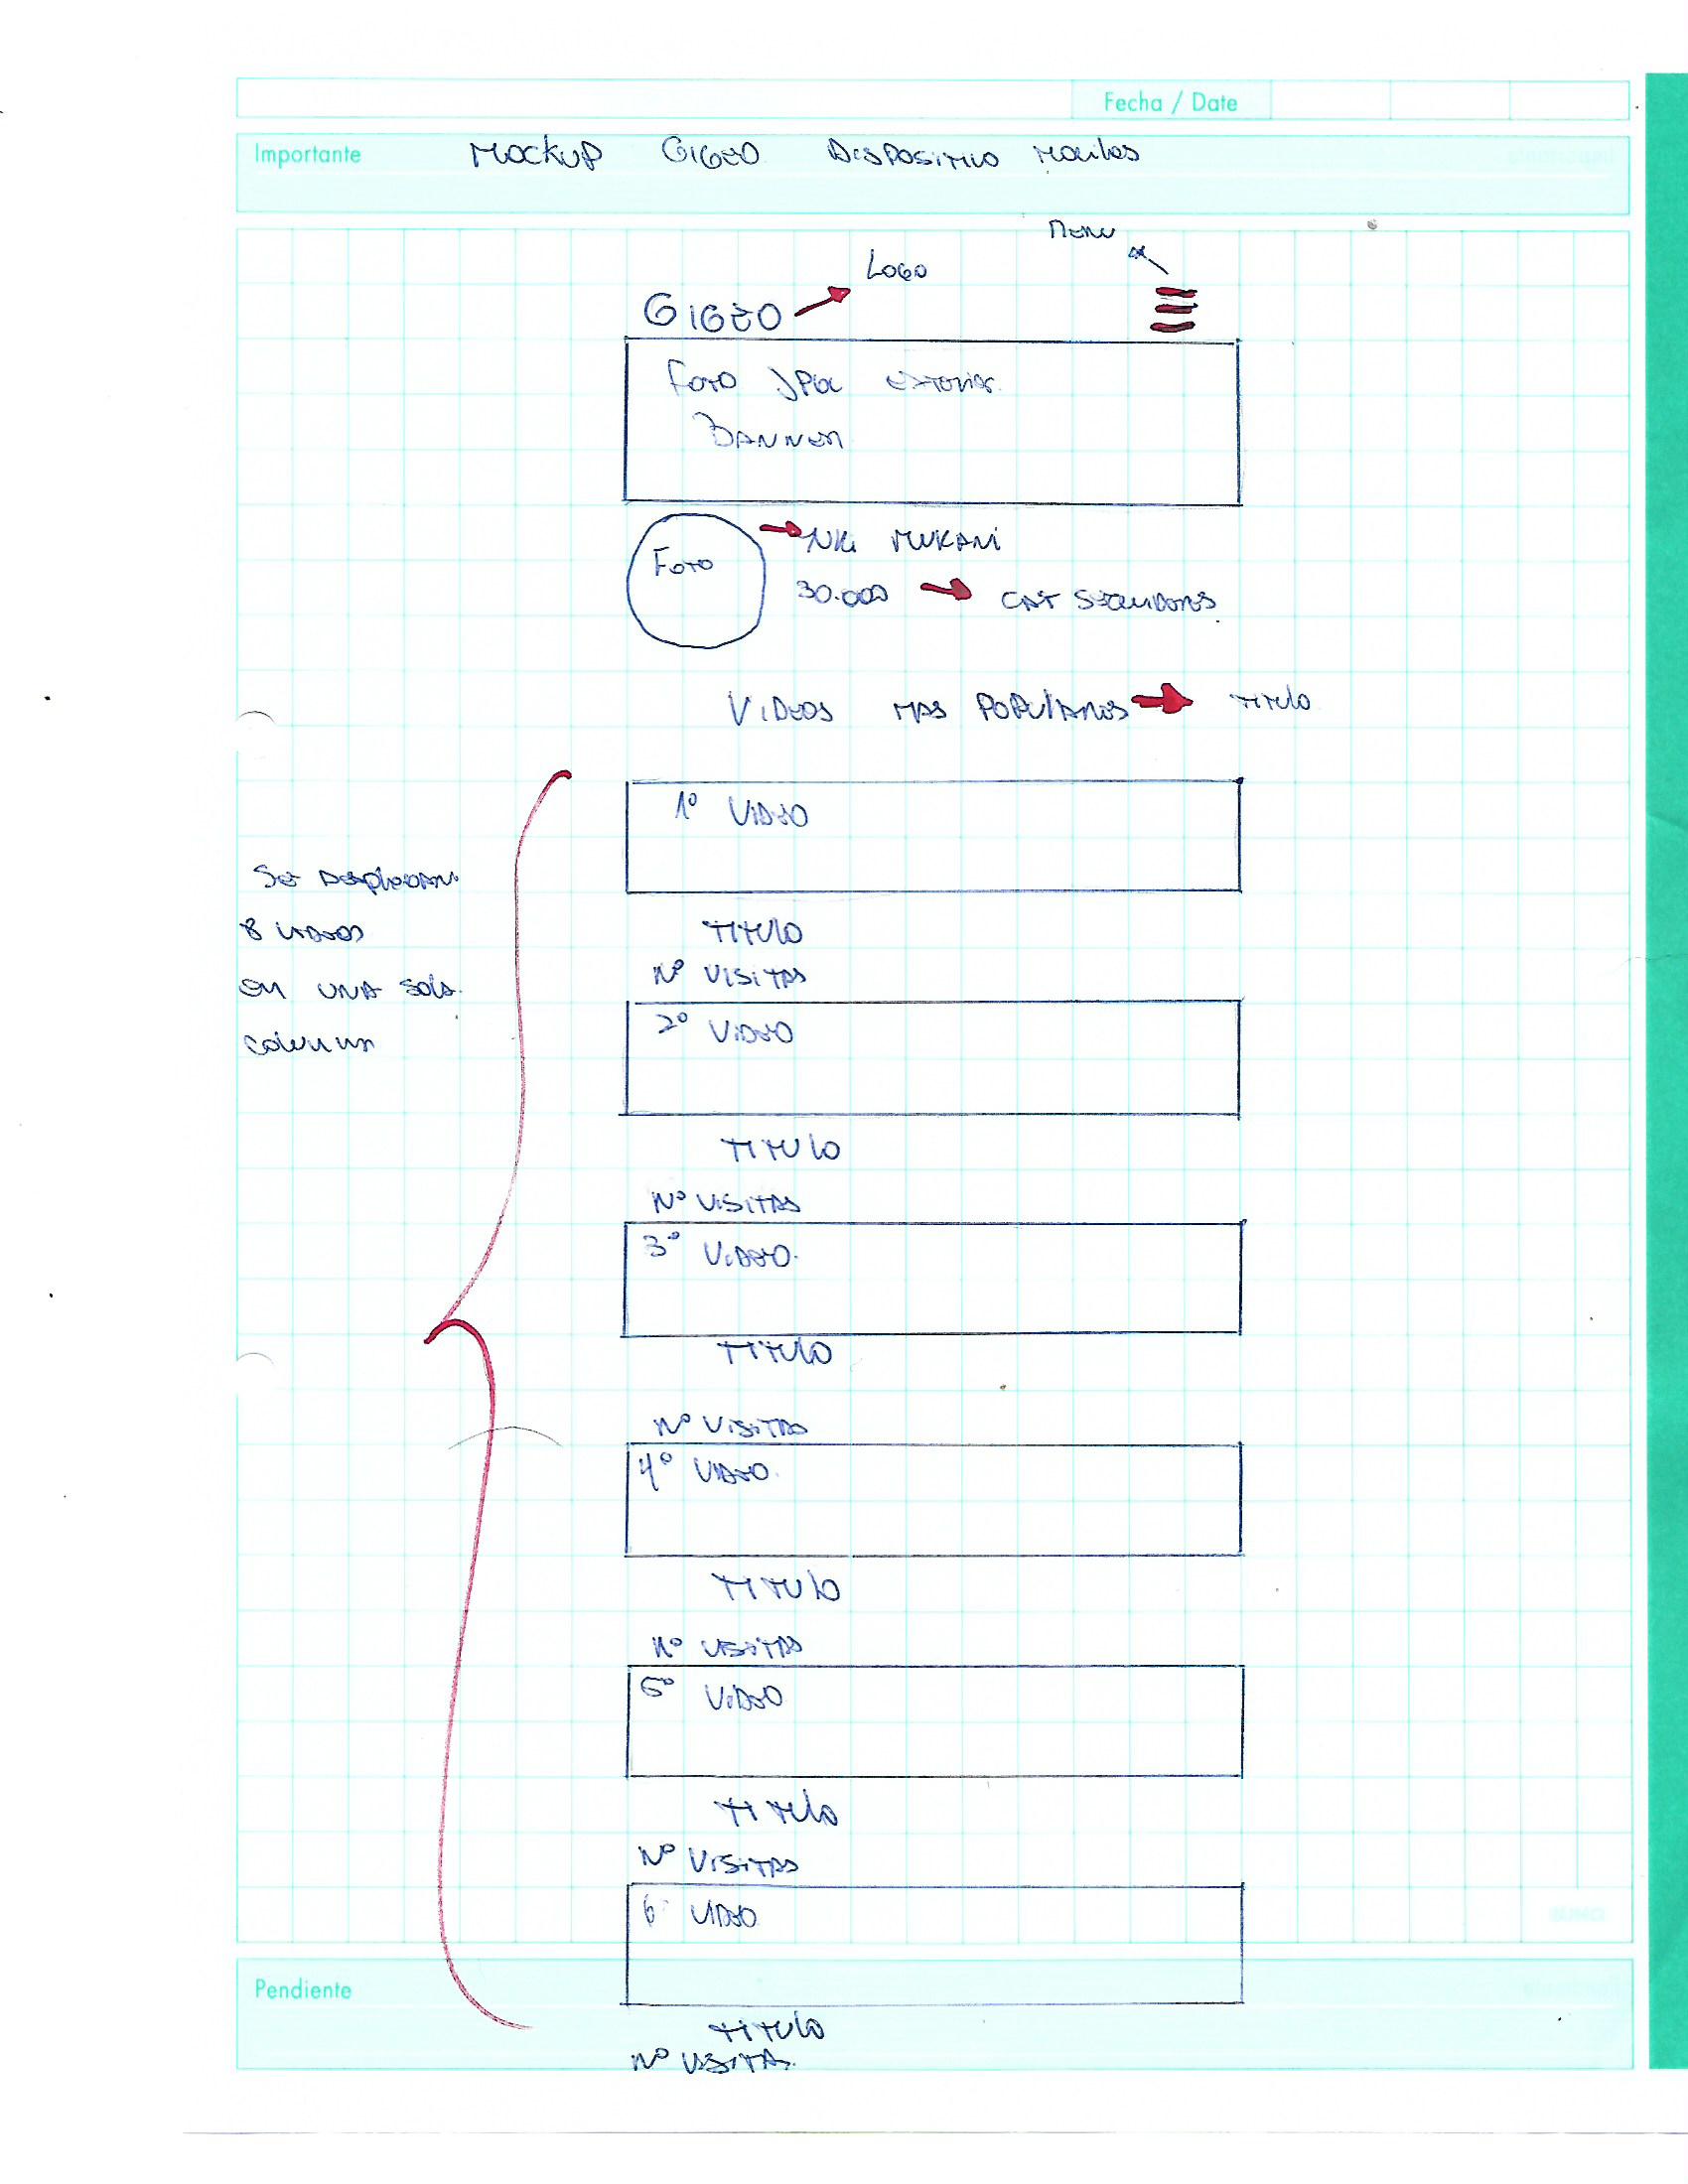 Fecha / Date
Importante
MOCKUP GIGEO DISPOSITIVO MOVILES
MENU
LOGO
GIGEO
FOTO JPG
BANNER
FOTO
MUKANI
30.000 CAT SEGUIDORES
VIDEOS MAS POPULARES TITULO
1º VIDEO
SE
8 VIDEOS
EN UNA SOLA
COLUMNA
TITULO
Nº VISITAS
2º VIDEO
TITULO
Nº VISITAS
3º VIDEO.
TITULO
Nº VISITAS
4º VIDEO.
TITULO
Nº VISITAS
5º VIDEO
TITULO
Nº VISITAS
6º VIDEO
Pendiente
TITULO
Nº VISITAS.